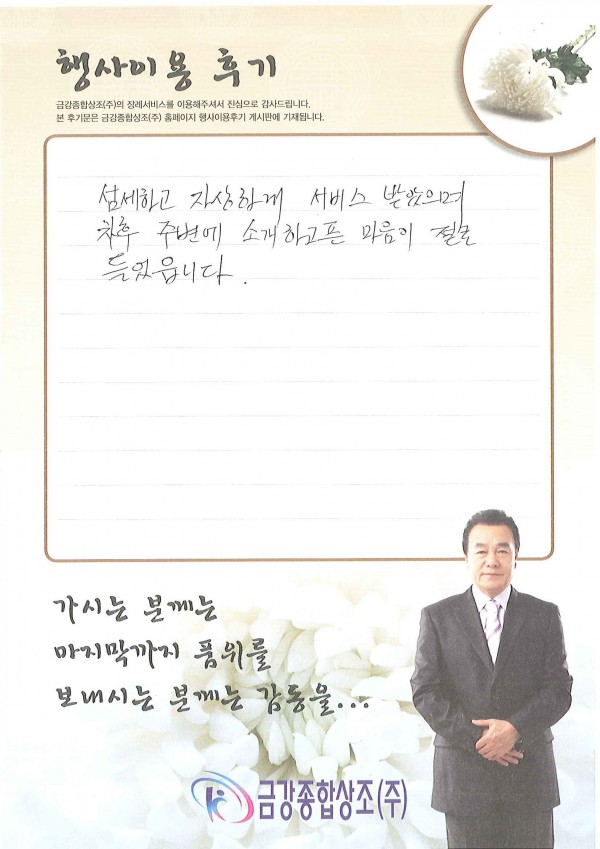 행사이용 후기
금강종합상조(주)의 장례서비스를 이용해주셔서 진심으로 감사드립니다.
본 후기문은 금강종합상조(주) 홈페이지 행사이용후기 게시판에 기재됩니다.
섬세하고 자상하게 서비스 받았으며
차후 주변에 소개하고픈 마음이 절로
들었읍니다.
가시는 분께는
마지막까지 품위를
보내시는 분께는 감동을...
금강종합상조(주)